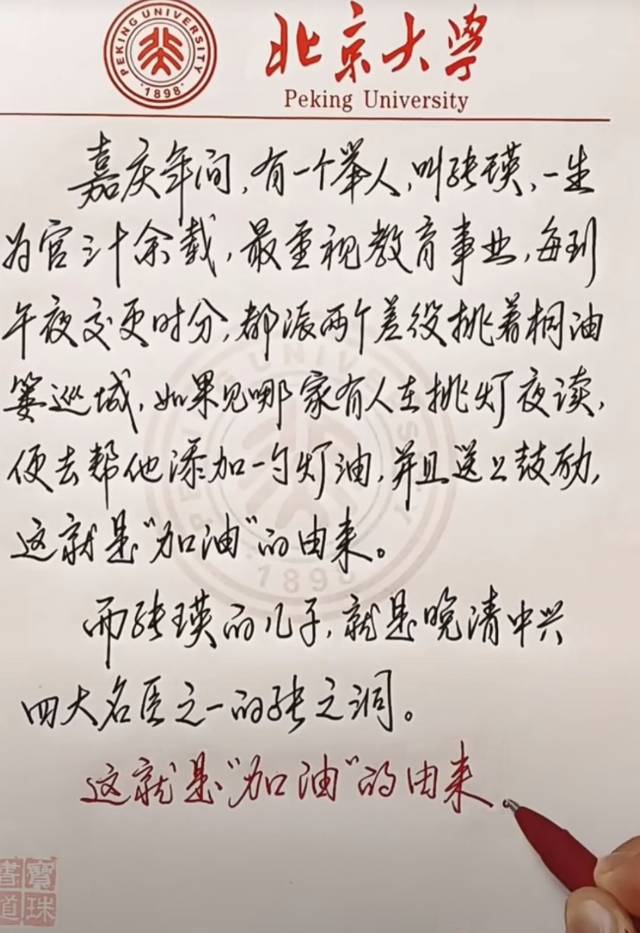 PEKING UNIVERSITY
1898
北京大学
Peking University
嘉庆年间,有一个举人,叫张瑛,一生
为官三十余载,最重视教育事业,每到
午夜交更时分,都派两个差役挑着桐油
篓巡城,如果见哪家有人在挑灯夜读,
便去帮他添加一勺灯油,并且送上鼓励,
这就是“加油”的由来。
而张瑛的儿子,就是晚清中兴
四大名臣之一的张之洞。
这就是“加油”的由来
1898
寶珠
書道